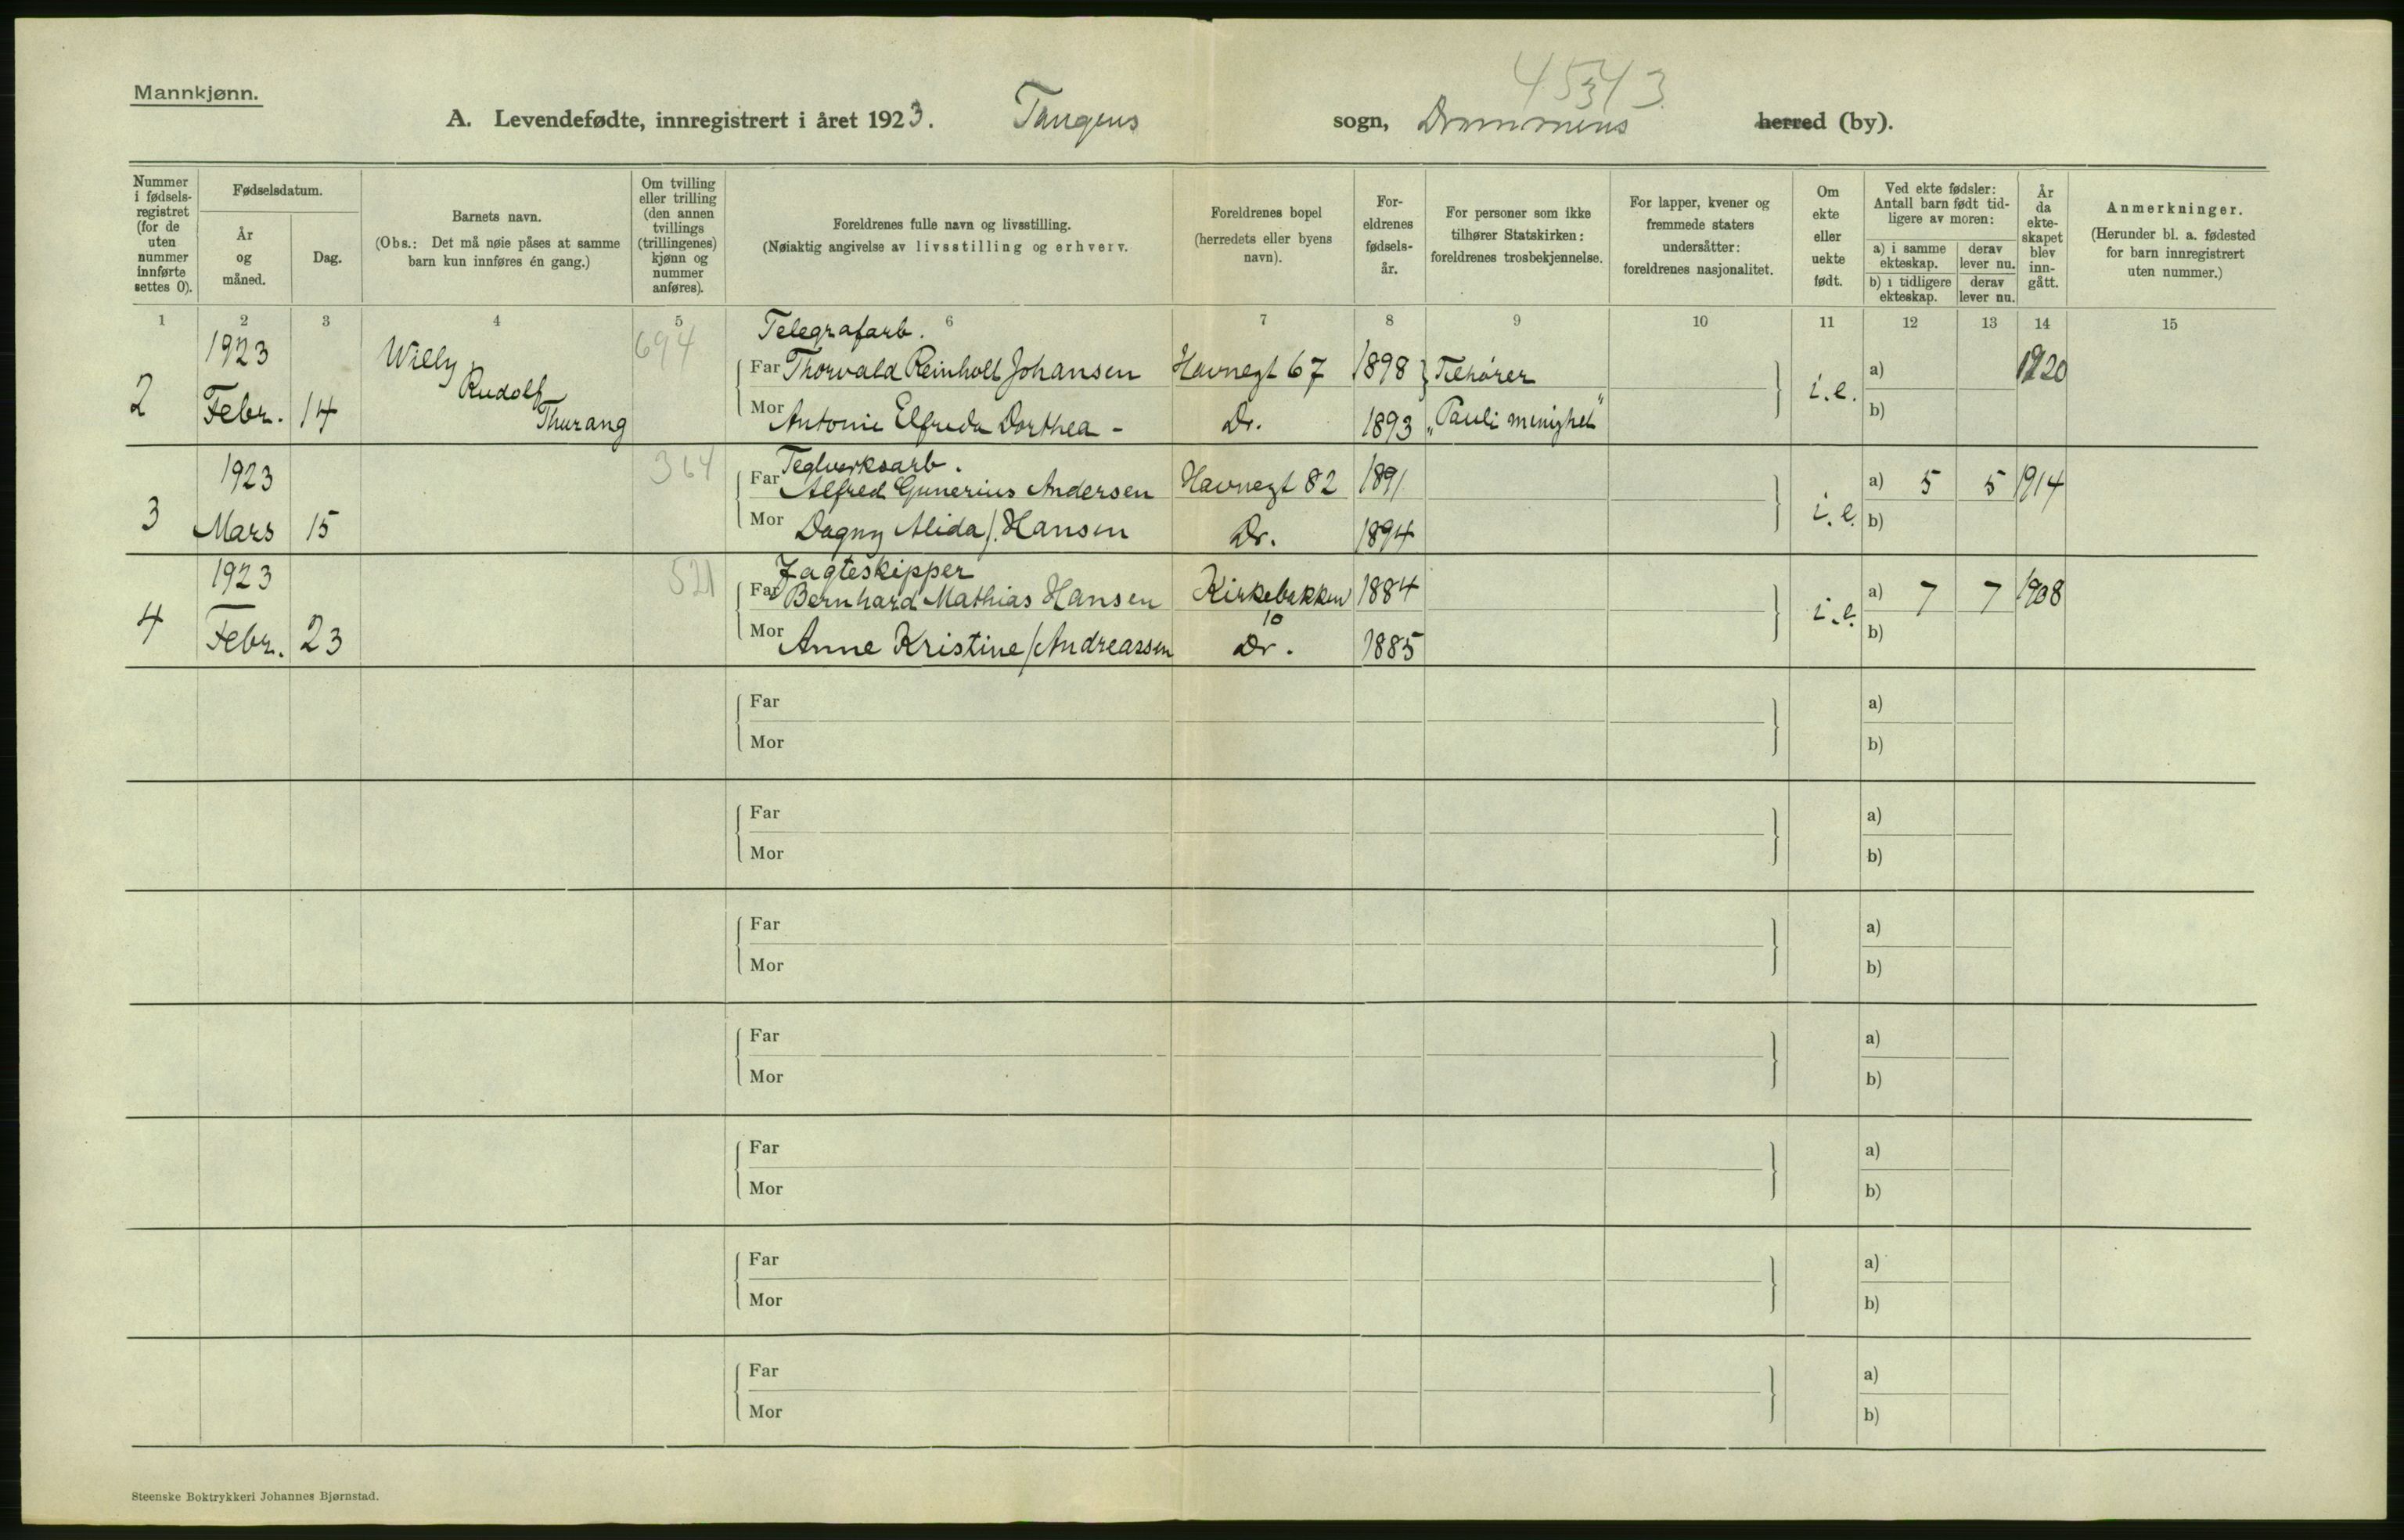 45343
Mannkjønn.
A. Levendefødte, innregistrert i året 1923. Tangens sogn, Drammens herred (by).
Nummer i fødselsregistret (for de uten nummer innførte settes 0).
Fødselsdatum.
År og måned.
Dag.
Barnets navn.
(Obs.: Det må nøie påses at samme barn kun innføres én gang.)
Om tvilling eller trilling (den annen tvillings (trillingenes) kjønn og nummer anføres).
Foreldrenes fulle navn og livsstilling.
(Nøiaktig angivelse av livsstilling og erhverv.
Foreldrenes bopel (herredets eller byens navn).
Foreldrenes fødselsår.
For personer som ikke tilhører Statskirken: foreldrenes trosbekjennelse.
For lapper, kvener og fremmede staters undersåtter: foreldrenes nasjonalitet.
Om ekte eller uekte født.
Ved ekte fødsler: Antall barn født tidligere av moren:
a) i samme ekteskap. derav lever nu.
b) i tidligere ekteskap. derav lever nu.
År da ekteskapet blev inngått.
Anmerkninger.
(Herunder bl. a. fødested for barn innregistrert uten nummer.)
1 2 3 4 5 6 7 8 9 10 11 12 13 14 15
Telegrafarb.
1923 Willy 694 Far Thorvald Reinholt Johansen Havnegt 67 1898 Tilhører a) 1920
2 Febr. 14 Rudolf Thurang Mor Antonie Elfrida Dorthea - Dr. 1893 "Pauli menighet" i.e. b)
Teglverksarb.
1923 364 Far Alfred Gunerius Andersen Havnegt 82 1891 a) 5 5 1914
3 Mars 15 Mor Dagny Alida /. Hansen Dr. 1894 i.e. b)
Jagteskipper
1923 521 Far Bernhard Mathias Hansen Kirkebakken 10 1884 a) 7 7 1908
4 Febr. 23 Mor Anne Kristine / Andreassen Dr. 1885 i.e. b)
Far a)
Mor b)
Far a)
Mor b)
Far a)
Mor b)
Far a)
Mor b)
Far a)
Mor b)
Far a)
Mor b)
Far a)
Mor b)
Steenske Boktrykkeri Johannes Bjørnstad.